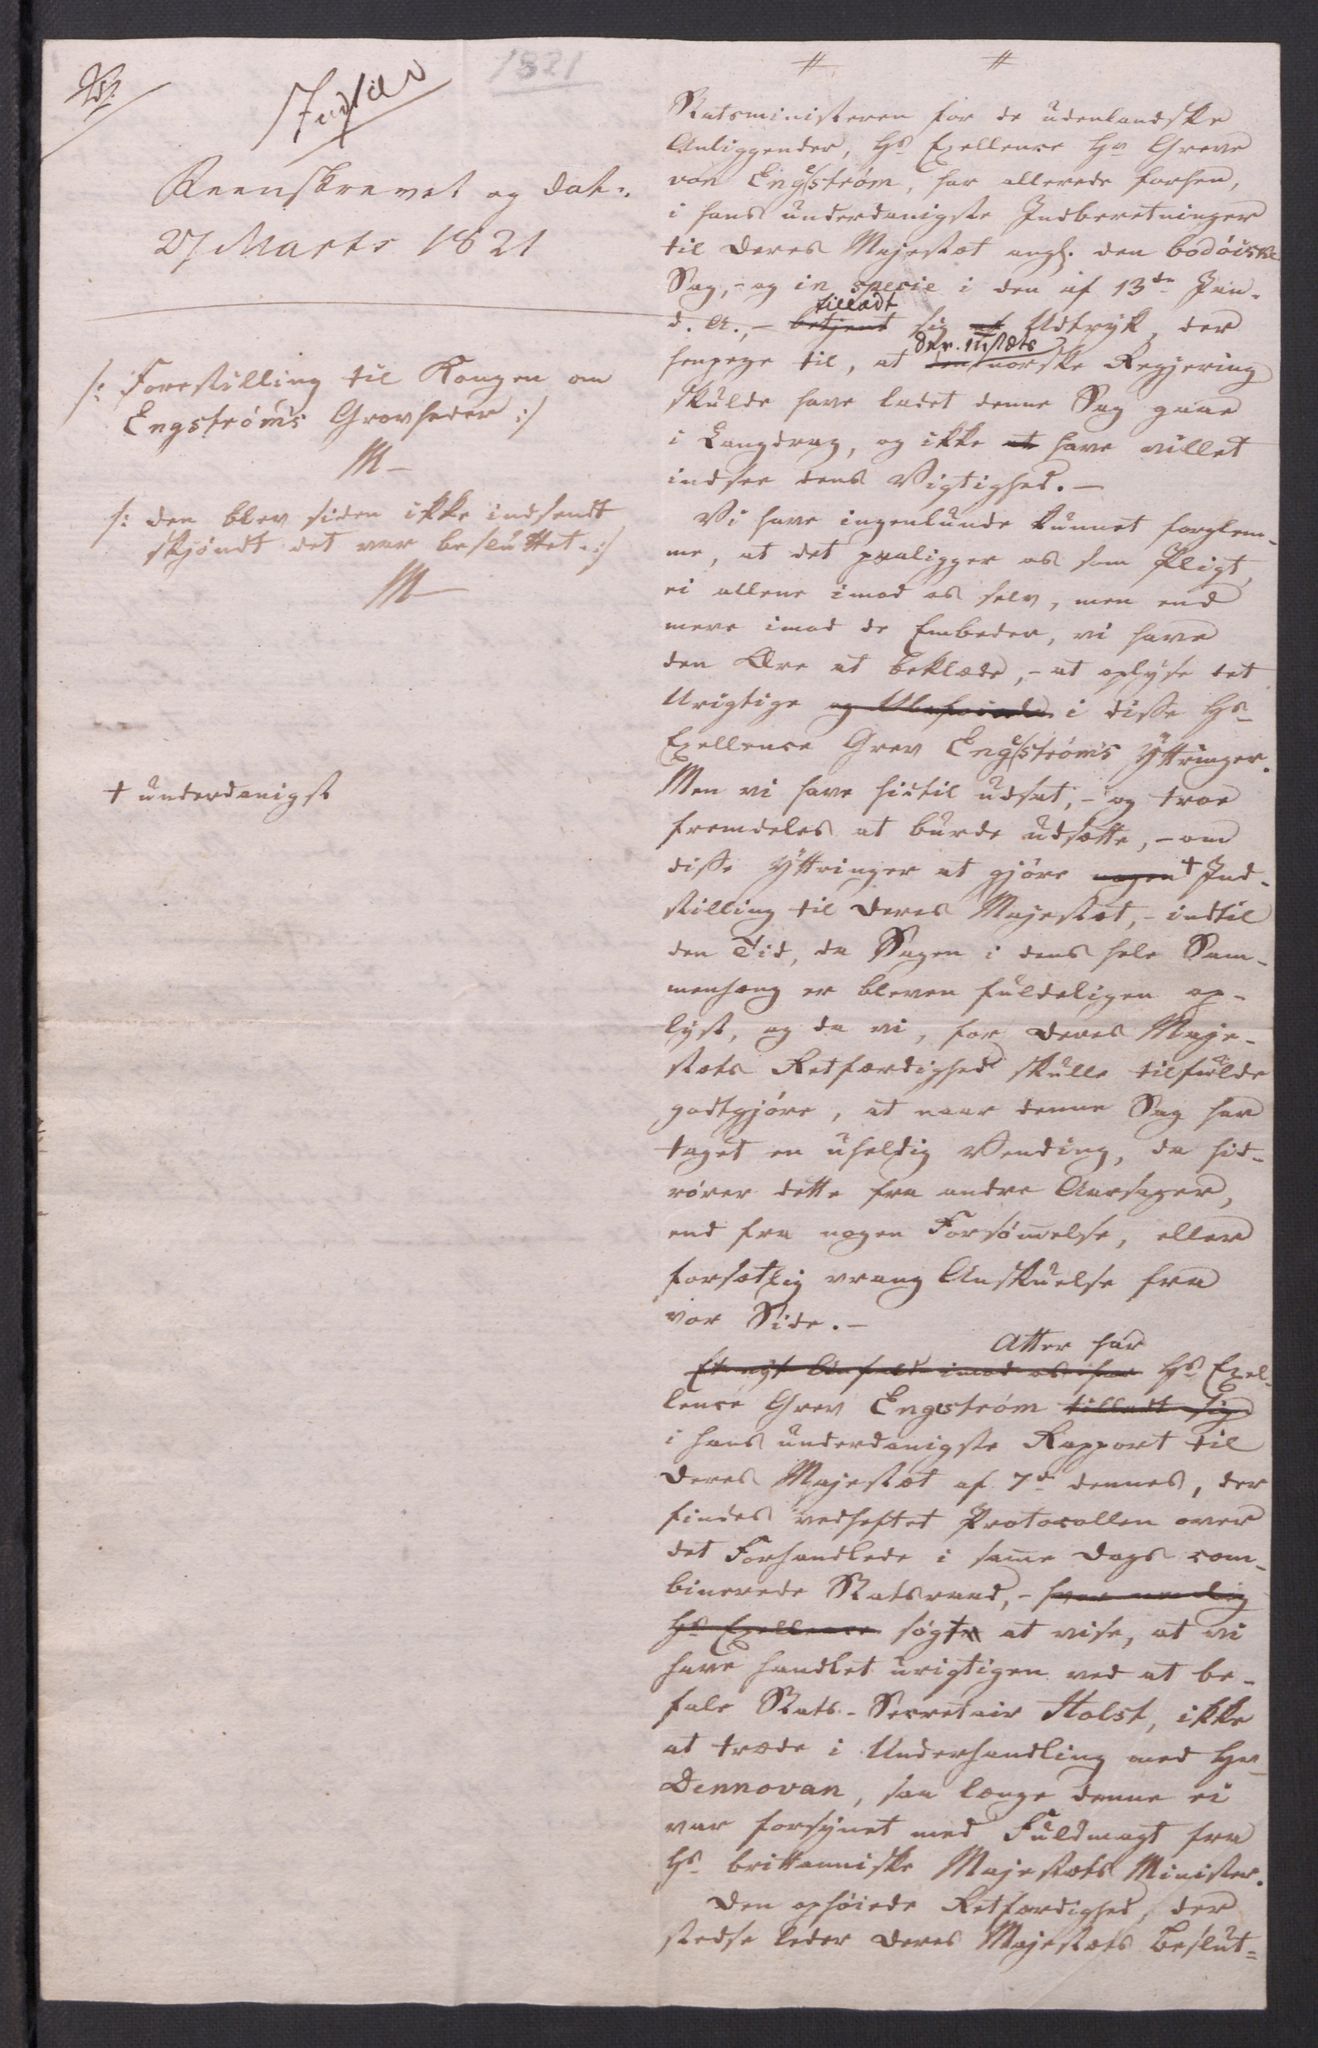 1821
Reenskrevet og dat:
27 Marts 1821
/: Forestilling til Kongen om
Engströms Grovheder :/
M
/: den blev siden ikke indsendt
skjöndt det var besluttet. :/
M
+ underdanigst
Statsministeren for de udenlandske
Anliggender, Hs Exellence Hr Greve
von Engeström, har allerede forhen,
i hans underdanigste Indberetninger
til Deres Majestæt angl. den bodöiske
Sag, - og in specie i den af 13de Jan.
tilladt
d. A., - betjent sig af Udtryk, der
D. M.stæts
henpege til, at den norske Regjering
skulde have ladet denne Sag gaae
i Langdrag, og ikke at have villet
indsee dens Vigtighed. -
Vi have ingenlunde kunnet forglem-
me, at det paaligger os som Pligt,
ei allene imod os selv, men end
mere imod de Embeder, vi have
den Ære at beklæde, - at oplyse det
Urigtige og i disse Hs
Exellence Grev Engeströms Yttringer.
Men vi have hidtil udsat, - og troe
fremdeles at burde udsætte, - om
disse Yttringer at gjöre nogen + Ind-
stilling til Deres Majestæt, - indtil
den Tid, da Sagen i dens hele Sam-
menhæng er bleven fuldeligen op-
lyst, og da vi, for Deres Maje-
stæts Retfærdighed skulle tilfulde
godtgjöre, at naar denne Sag har
taget en uheldig Vending, da hid-
rörer dette fra andre Aarsager,
end fra nogen Forsömelse, eller
forsætlig vrang Anskuelse fra
vor Side. -
Atter har
Et nyt Anfald imod os har Hs Exel-
lence Grev Engeström tilladt sig
i hans underdanigste Rapport til
Deres Majestæt af 7de dennes, der
findes vedheftet Protocollen over
det Forhandlede i same Dags com-
binerede Statsraad, -
Hs Exellence sögt at vise, at vi
have handlet urigtigen ved at be-
fale Stats-Secretair Holst, ikke
at træde i Underhandling med Hr
Dennovan, saa længe denne ei
var forsynet med Fuldmagt fra
Hs brittanniske Majestæts Minister.
Den ophöiede Retfærdighed, der
stedse leder Deres Majestæts Beslut-